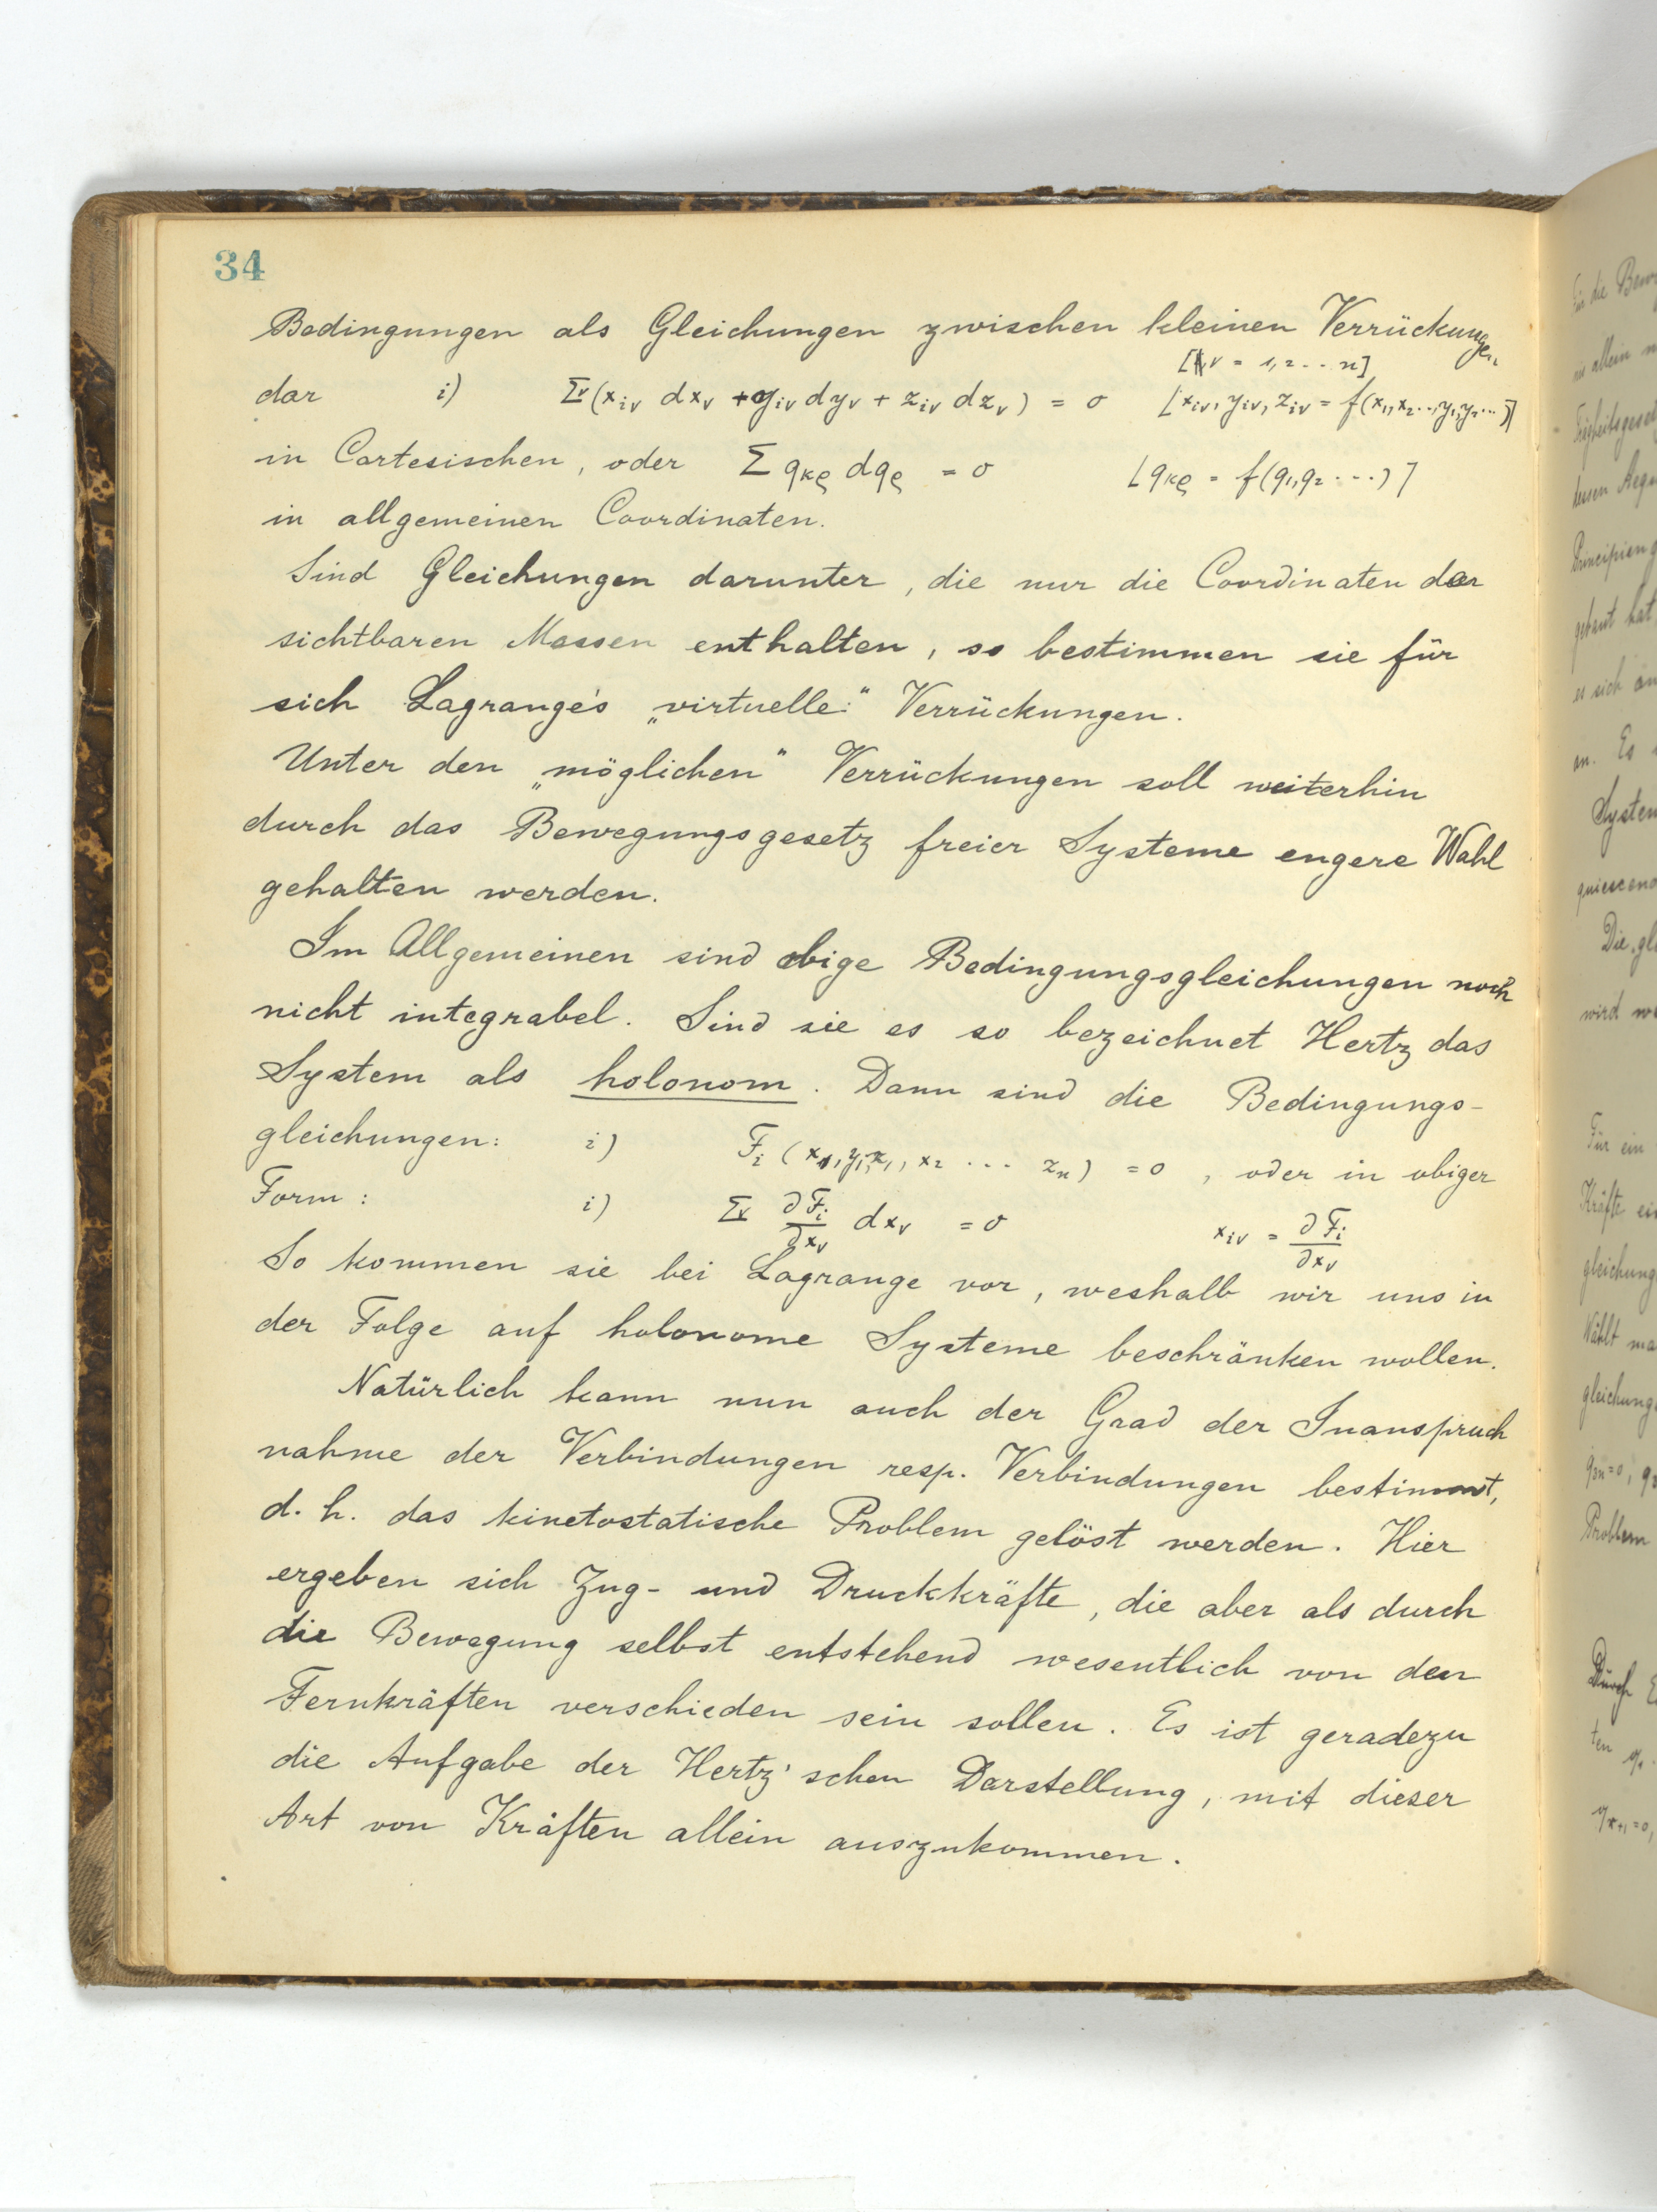 34
Bedingungen als Gleichungen zwischen kleinen Verrückungen
[ν = 1,2 .. n]
dar i) Σν (xiν dxν + yiν dyν + ziν dzν) = 0 [xiν, yiν, ziν = f(x1,x2..,y1,y2...)]
in Cartesischen, oder Σ qκϱ dqϱ = 0 [qκϱ = f(q1,q2 ...)]
in allgemeinen Coordinaten.
Sind Gleichungen darunter, die nur die Coordinaten der
sichtbaren Massen enthalten, so bestimmen sie für
sich Lagrange's „virtuelle“ Verrückungen.
Unter den „möglichen“ Verrückungen soll weiterhin
durch das Bewegungsgesetz freier Systeme engere Wahl
gehalten werden.
Im Allgemeinen sind obige Bedingungsgleichungen noch
nicht integrabel. Sind sie es so bezeichnet Hertz das
System als holonom. Dann sind die Bedingungs-
gleichungen: i) Fi (x1,y1,z1, x2 ... zn) = 0, oder in obiger
Form: i) Σν ∂Fi/∂xν dxν = 0 xiν = ∂Fi/∂xν
So kommen sie bei Lagrange vor, weshalb wir uns in
der Folge auf holonome Systeme beschränken wollen.
Natürlich kann nun auch der Grad der Inanspruch
nahme der Verbindungen resp. Verbindungen bestimmt,
d. h. das kinetostatische Problem gelöst werden. Hier
ergeben sich Zug- und Druckkräfte, die aber als durch
die Bewegung selbst entstehend wesentlich von den
Fernkräften verschieden sein sollen. Es ist geradezu
die Aufgabe der Hertz'schen Darstellung, mit dieser
Art von Kräften allein auszukommen.